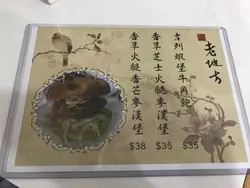 老地方
吉列蝦堡牛角飽
$35
香草芝士火腿麥漢堡
$35
香草火腿香芒麥漢堡
$38